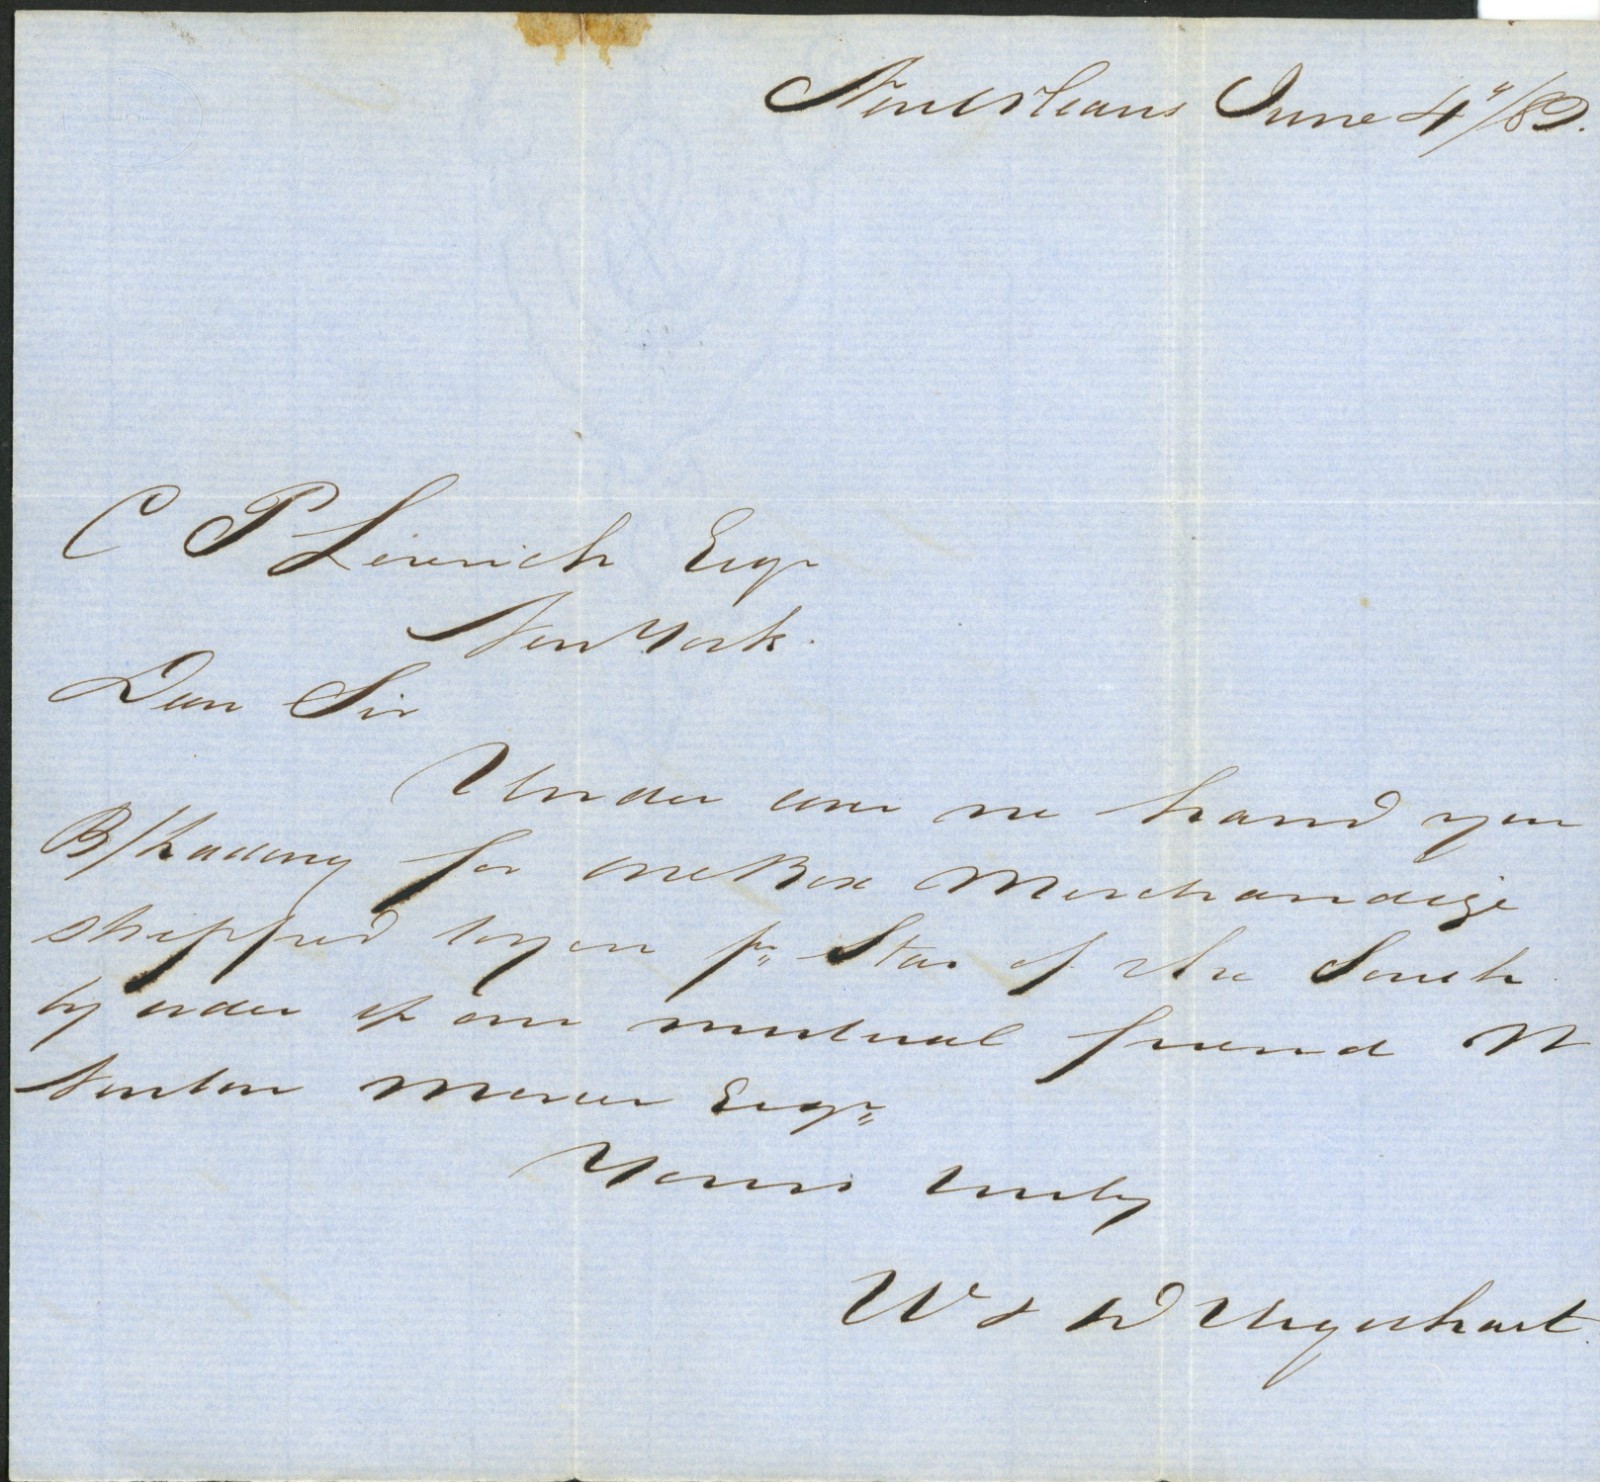 New Orleans June 4"/59.
C P Leverich Esqr
New York.
Dear Sir
Under cover we hand you
B/Lading for one Box Merchandize
shipped to you pr Star of the South
by order of our mutual friend W
Newton Mercer Esqr
Yours truly
W & D Urquhart